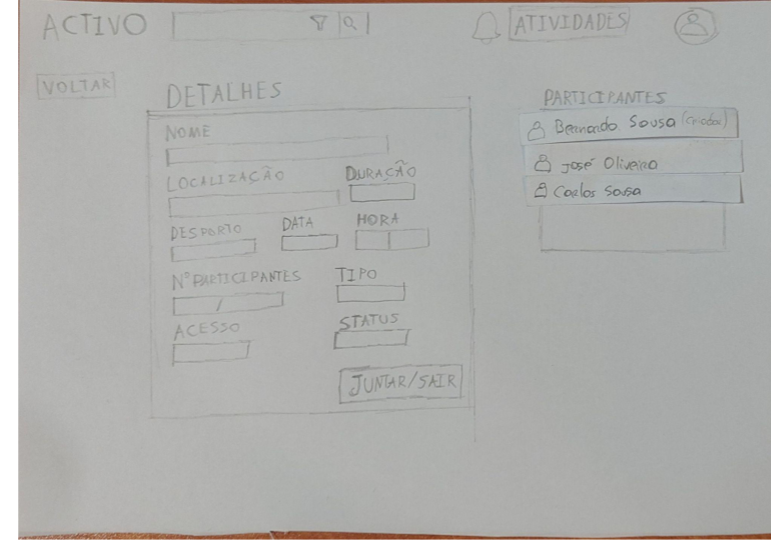 ACTIVO
ATIVIDADES
VOLTAR
DETALHES
NOME
LOCALIZAÇÃO
DURAÇÃO
DESPORTO
DATA
HORA
Nº PARTICIPANTES
/
TIPO
ACESSO
STATUS
JUNTAR/SAIR
PARTICIPANTES
Bernardo Sousa (Criador)
José Oliveira
Carlos Sousa